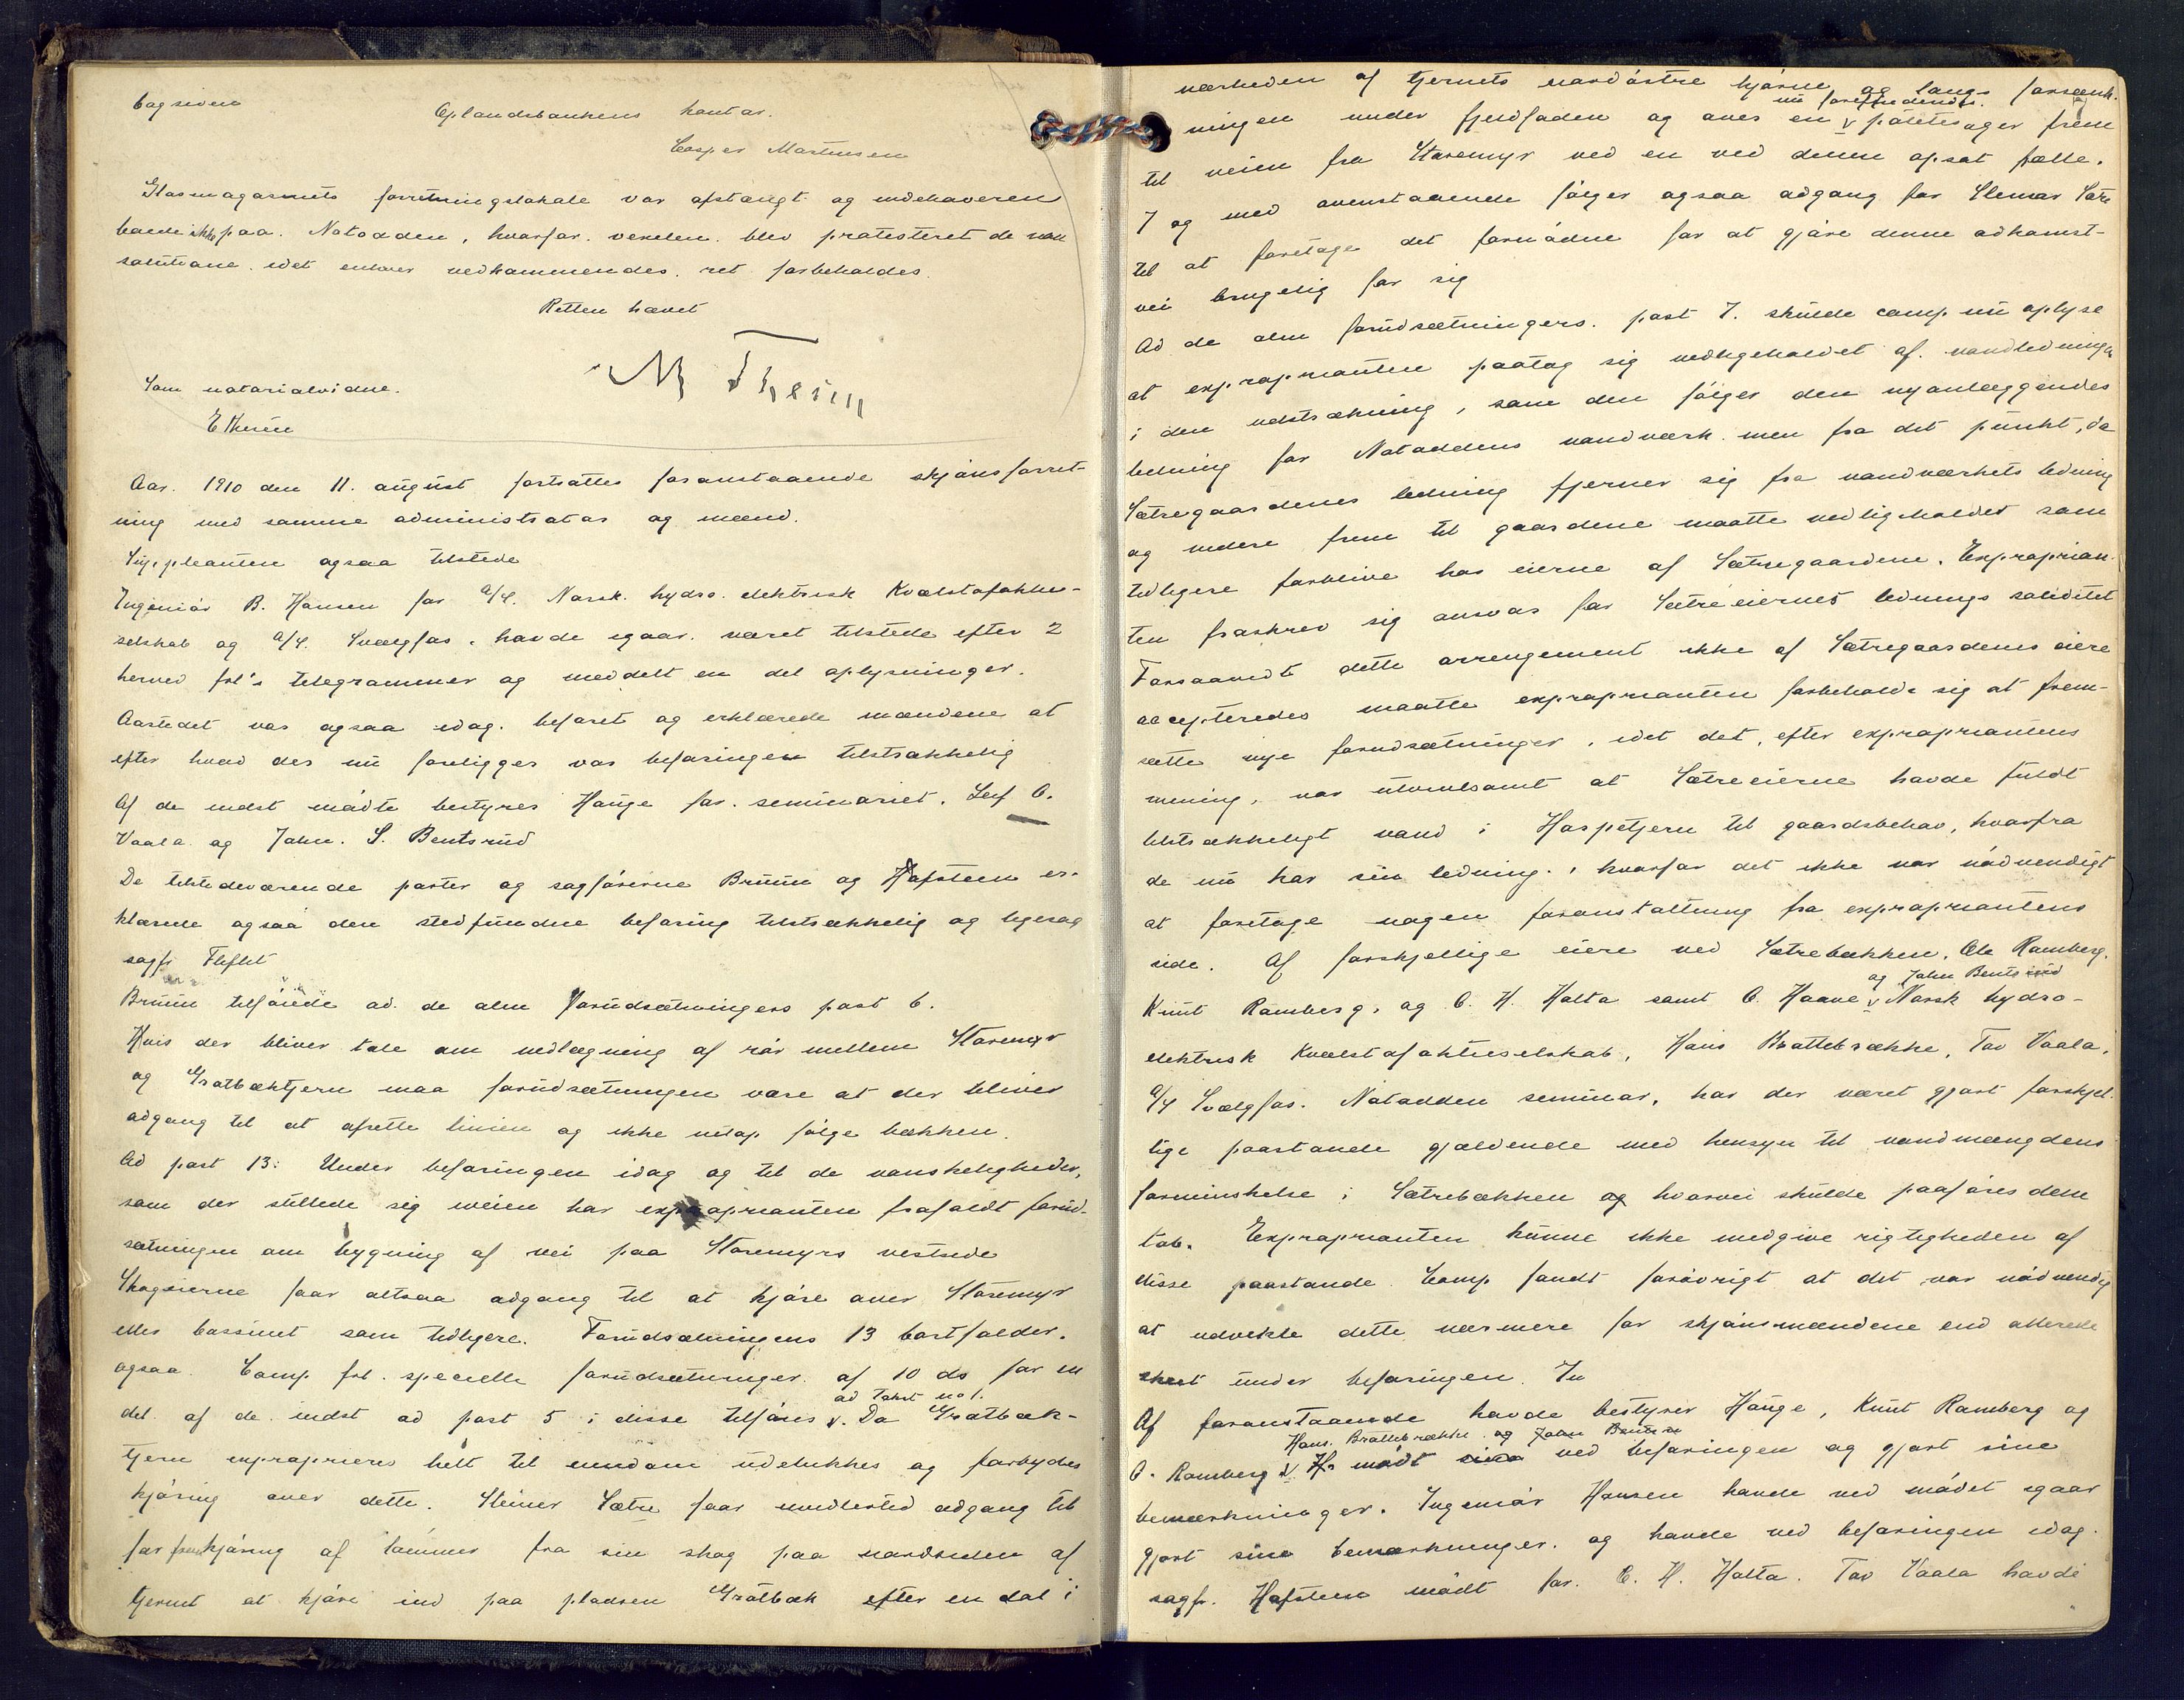 bagsiden
Oplandsbankens kontor.
Casper Martinsen
Glasmagasinets forretningslokale var afstængt og indehaveren
boede ikke paa. Notodden, hvorfor. vexelen. blev protesteret de non
solutione. idet enhver vedkommendes. ret forbeholdes.
Retten hævet
M Thesen
Som notarialvidne.
E Thesen
Aar. 1910 den 11. august fortsattes foranstaaende skjønsforret-
ning med samme administrator og mænd.
Suppleanten ogsaa tilstede
Ingeniør B. Hansen for A/S. Norsk. hydro. elektrisk Kvælstofaktie-
selskab og A/S. Svælgfos. havde igaar. været tilstede efter 2
herved fol's telegrammer og meddelt en del oplysninger.
Aastedet var ogsaa idag. befaret og erklærede mændene at
efter hvad der nu foreligger var befaringen tilstrækkelig
Af de indst mødte bestyrer Hauge for. seminariet. Leif O.
Vaala og John. S. Bentsrud
De tilstedeværende parter og sagførerne Bruun og Hofsteen er-
klærede ogsaa den stedfundne befaring tilstrækkelig og ligesaa
sagfr Fliflet
Bruun tilføiede ad. de alm Forudsætningers post 6.
Hvis der bliver tale om nedlægning af rør mellem Storemyr
og Gratbæktjern maa forudsætningen være at der bliver
adgang til at afrette linien og ikke netop følge bækken.
Ad post 13: Under befaringen idag og til de vanskeligheder,
som der stillede sig iveien har exproprianten frafaldt forud-
sætningen om bygning af vei paa Storemyrs vestside
Skogeierne faar altsaa adgang til at kjøre over Storemyr
eller bassinet som tidligere. Forudsætningens 13 bortfalder.
ogsaa. Comp. fol. specielle forudsætninger. af 10 ds for en
ad Takst no 1.
del. af de. indst ad post 5 i disse tilføies v. Da Gratbæk-
tjern exproprieres helt til eiendom udelukkes og forbydes
kjøring over dette. Steinar Sætre faar imidlertid adgang til
for fremkjøring af tømmer fra sin skog paa nordsiden af
tjernet at kjøre ind paa pladsen Gratbæk efter en dal i
nærheden af tjernets nordøstre hjørne og langs forsænk-
nu forefindendes.
ningen under fjeldfoden og over en v potetesager frem
til veien fra Storemyr ved en ved denne opsat fælle.
I og med ovenstaaende følger ogsaa adgang for Steinar Sætre
til at foretage det fornødne for at gjøre denne adkomst-
vei brugelig for sig
Ad de alm forudsætningers. post 7. skulde comp. nu oplyse
at exproprianten paatog sig vedligeholdet af. vandledningen
i den udstrækning, som den følger den nyanlæggendes
ledning for Notoddens vandværk. men fra det punkt, da
Sætregaardenes ledning fjerner sig fra vandværkets ledning
og videre frem til gaardene maatte vedligeholdet som
tidligere forblive hos eierne af Sætregaardene. Exproprian-
ten fraskrev sig ansvar for Sætreeiernes lednings soliditet
Forsaavidt dette arrengement ikke af Sætregaardenes eiere
accepteredes maatte exproprianten forbeholde sig at frem-
sætte nye forudsætninger, idet det, efter expropriantens
mening, var utvivlsomt at Sætreeierne havde fuldt
tilstrækkeligt vand i Haspetjern til gaardsbehov, hvorfra
de nu har sin ledning., hvorfor det ikke var nødvendigt
at foretage nogen foranstaltning fra expropriantens
side. Af forskjellige eiere ved Sætrebækken, Ole Ramberg.
og John Bentsrud
Knut Ramberg, og O. H. Holta samt O. Haave v Norsk hydro-
elektrisk Kvælstofaktieselskab, Hans Brattebrække, Tov Vaala,
A/S Svælgfos. Notodden seminar, har der været gjort forskjel-
lige paastande gjældende med hensyn til vandmængdens
forminskelse i Sætrebækken og hvorvei skulde paaføres dem
tab. Exproprianten kunne ikke medgive rigtigheden af
disse paastande. Comp fandt forøvrigt at det var nødvendig
at udvikle dette nærmere for skjønsmændene end allerede
skeet under befaringen. In
Af foranstaaende havde bestyrer Hauge, Knut Ramberg og
Hans. Brattebrække og John Bentsrud
O. Ramberg v. H. mødt ved befaringen og gjort sine
bemærkninger. Ingeniør Hansen havde ved mødet igaar
gjort sine bemærkninger. og havde ved befaringen idag.
sagfr. Hofsteen mødt for. O. H. Holta. Tov Vaala havde